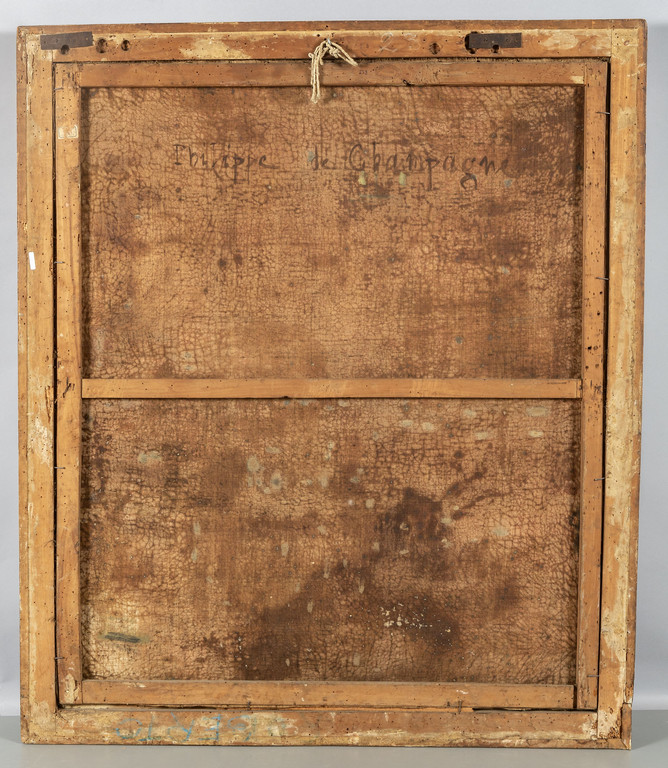 Philippe de Champagne